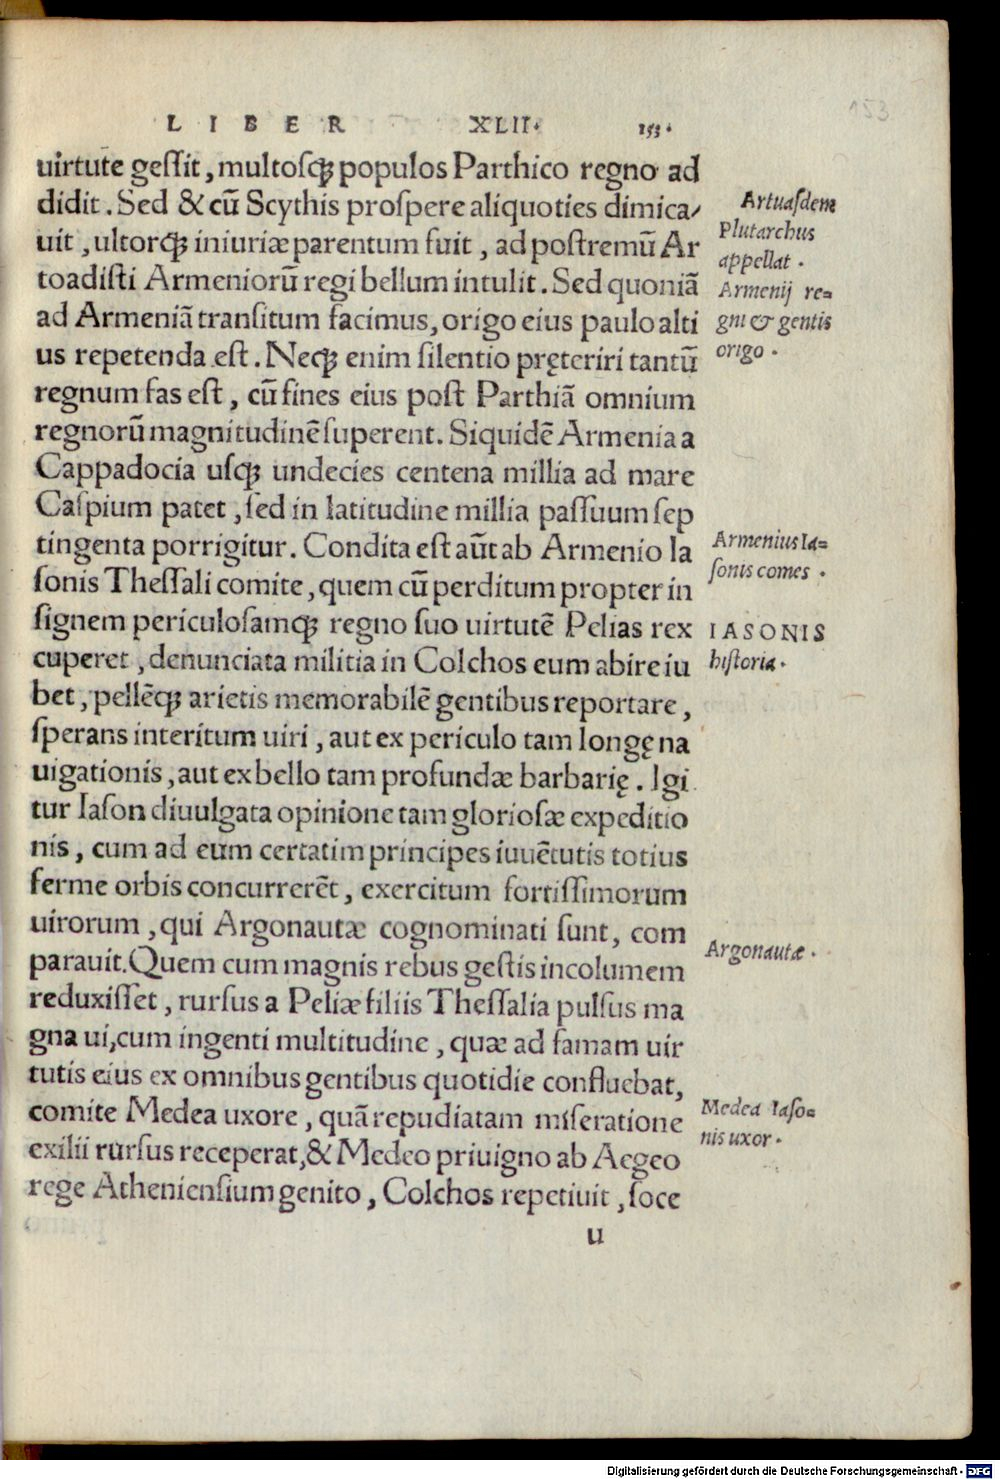 LIBER XLII. 153.
153
uirtute geſſit, multoſq́ꝫ populos Parthico regno ad
didit. Sed & cũ Scythis proſpere aliquoties dimica/
uit, ultorq́ꝫ iniuriæ parentum fuit, ad poſtremũ Ar
toadiſti Armeniorũ regi bellum intulit. Sed quoniã
ad Armeniã tranſitum facimus, origo eius paulo alti
us repetenda eſt. Neq́ꝫ enim ſilentio pręteriri tantũ
regnum fas eſt, cũ fines eius poſt Parthiã omnium
regnorũ magnitudinẽ ſuperent. Siquidẽ Armenia a
Cappadocia uſq́ꝫ undecies centena millia ad mare
Caſpium patet, ſed in latitudine millia paſſuum ſep
tingenta porrigitur. Condita eſt aũt ab Armenio Ia
ſonis Theſſali comite, quem cũ perditum propter in
ſignem periculoſamq́ꝫ regno ſuo uirtutẽ Pelias rex
cuperet, denunciata militia in Colchos eum abire iu
bet, pellẽq́ꝫ arietis memorabilẽ gentibus reportare,
ſperans interitum uiri, aut ex periculo tam longę na
uigationis, aut ex bello tam profundæ barbarię. Igi
tur Iaſon diuulgata opinione tam glorioſæ expeditio
nis, cum ad eum certatim principes iuuẽtutis totius
ferme orbis concurrerẽt, exercitum fortiſſimorum
uirorum, qui Argonautæ cognominati ſunt, com
parauit. Quem cum magnis rebus geſtis incolumem
reduxiſſet, rurſus a Peliæ filiis Theſſalia pulſus ma
gna ui, cum ingenti multitudine, quæ ad famam uir
tutis eius ex omnibus gentibus quotidie confluebat,
comite Medea uxore, quã repudiatam miſeratione
exilii rurſus receperat, & Medeo priuigno ab Aegeo
rege Athenienſium genito, Colchos repetiuit, ſoce
u
Artuaſdem
Plutarchus
appellat.
Armenij re=
gni & gentis
origo.
Armenius Ia=
ſonis comes.
IASONIS
hiſtoria.
Argonautæ.
Medea Iaſo=
nis uxor.
Digitalisierung gefördert durch die Deutsche Forschungsgemeinschaft - DFG